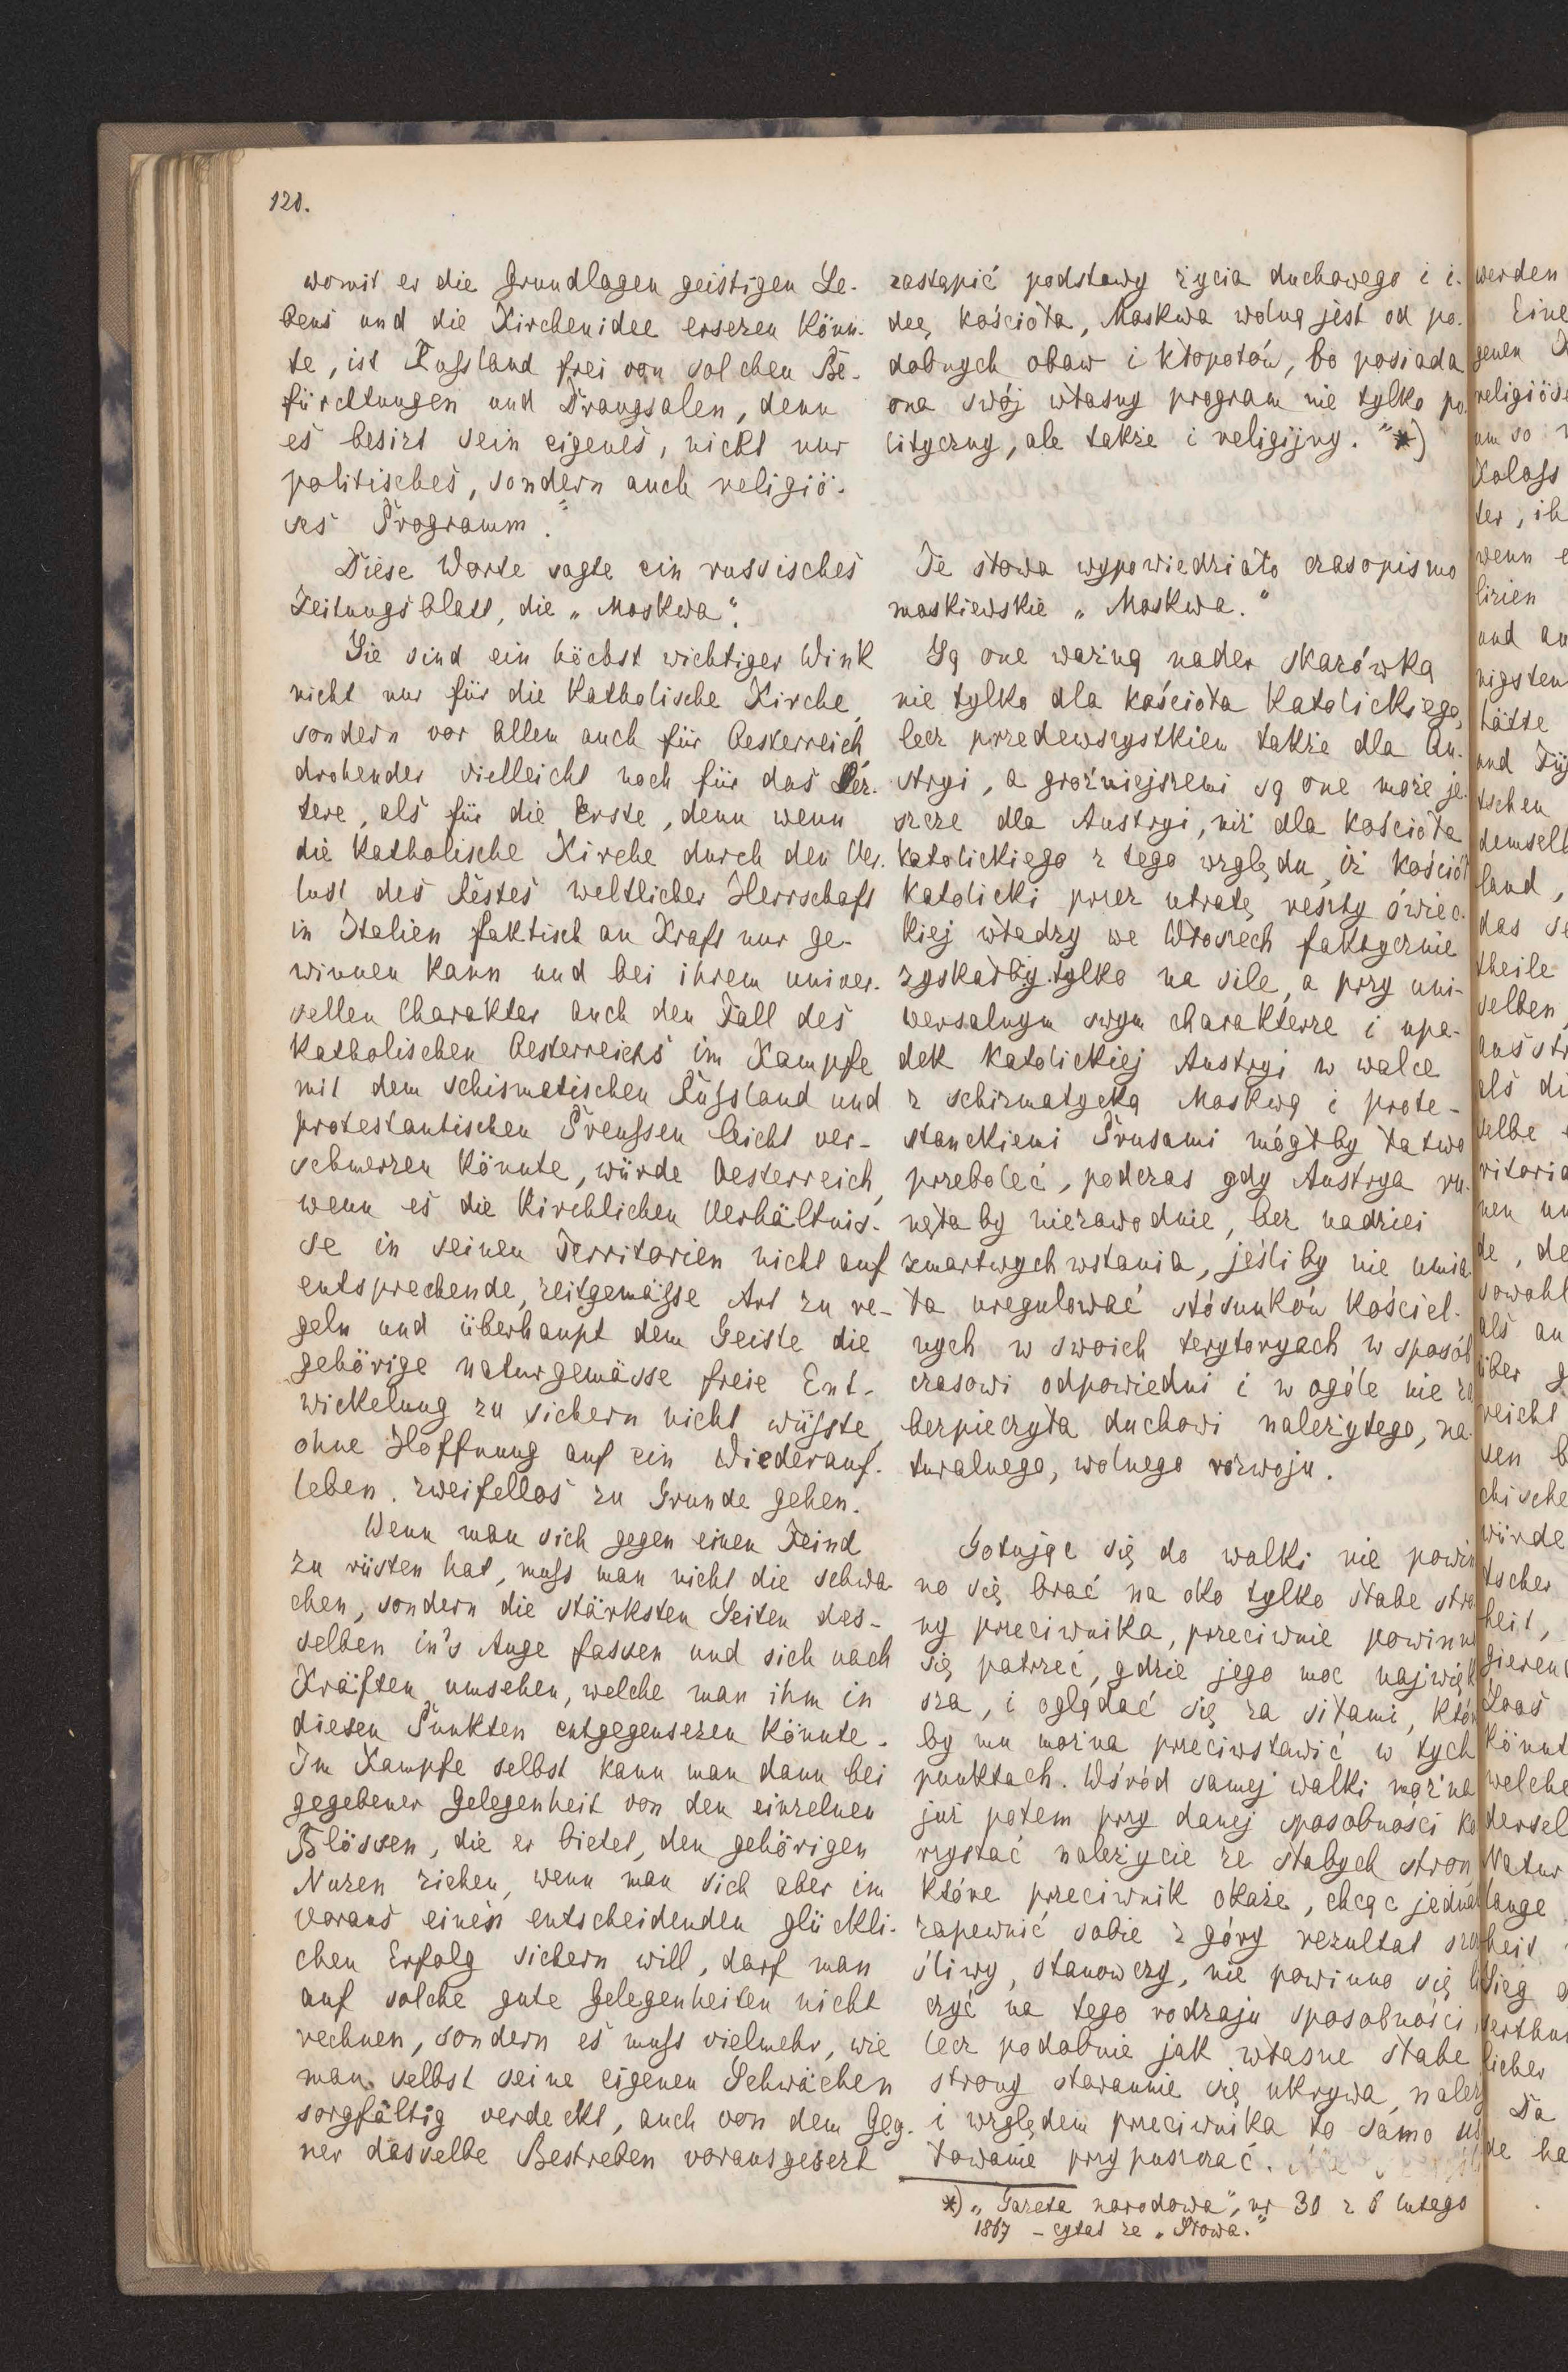 120.
womit er die Grundlagen geistigen Le-
bens und die Kirchenidee ersezen könn-
te, ist Russland frei von solchen Be-
fürchtungen und Drangsalen, denn
es besizt sein eigenes, nicht nur
politisches, sondern auch religiö-
ses Programm."
Diese Worte sagte ein russisches
Zeitungsblatt, die „Moskwa“.
Sie sind ein höchst wichtiger Wink
nicht nur für die katholische Kirche,
sondern vor allem auch für Oesterreich,
drohender vielleicht noch für das Lez-
tere, als für die Erste, denn wenn
die katholische Kirche durch den Ver-
lust des Restes weltlicher Herrschaft
in Italien faktisch an Kraft nur ge-
winnen kann und bei ihrem univer-
sellen Charakter auch den Fall des
katholischen Oesterreichs im Kampfe
mit dem schismatischen Russland und
protestantischen Preussen leicht ver-
schmerzen könnte, würde Oesterreich,
wenn es die kirchlichen Verhältnis-
se in seinen Territorien nicht auf
entsprechende, zeitgemässe Art zu re-
geln und überhaupt dem Geiste die
gehörige naturgemässe freie Ent-
wickelung zu sichern nicht wüsste,
ohne Hoffnung auf ein Wiederauf-
leben, zweifellos zu Grunde gehen.
Wenn man sich gegen einen Feind
zu rüsten hat, muss man nicht die schwa-
chen, sondern die stärksten Seiten des-
selben in's Auge fassen und sich nach
Kräften umsehen, welche man ihm in
diesen Punkten entgegensezen könnte.
Im Kampfe selbst kann man dann bei
gegebener Gelegenheit von den einzelnen
Blössen, die er bietet, den gehörigen
Nuzen ziehen, wenn man sich aber im
voraus einen entscheidenden glückli-
chen Erfolg sichern will, darf man
auf solche gute Gelegenheiten nicht
rechnen, sondern es muss vielmehr, wie
man selbst seine eigenen Schwächen
sorgfältig verdeckt, auch von dem Geg-
ner dasselbe Bestreben vorausgesezt
zastąpić podstawy życia duchowego i i-
deę kościoła, Moskwa wolną jest od po-
dobnych obaw i kłopotów, bo posiada
ona swój własny program nie tylko po-
lityczny, ale także i religijny."*)
Te słowa wypowiedziało czasopismo
moskiewskie „Moskwa.“
Są one ważną nader skazówką
nie tylko dla kościoła katolickiego,
lecz przedewszystkiem także dla Au-
stryi, a groźniejszemi są one może je-
szcze dla Austryi, niż dla kościoła
katolickiego z tego względu, iż kościół
katolicki przez utratę reszty świec-
kiej władzy we Włoszech faktycznie
zyskałby tylko na sile, a przy uni-
wersalnym swym charakterze i upa-
dek katolickiej Austryi w walce
z schizmatycką Moskwą i prote-
stanckiemi Prusami mógłby łatwo
przeboleć, podczas gdy Austrya ru-
nęłaby niezawodnie, bez nadziei
zmartwychwstania, jeśliby nie umia-
ła uregulować stósunków kościel-
nych w swoich terytoryach w sposób
czasowi odpowiedni i w ogóle nie za
bezpieczyła duchowi należytego, na-
turalnego, wolnego rozwoju.
Gotując się do walki nie powin
no się brać na oko tylko słabe stro
ny przeciwnika, przeciwnie powinno
się patrzeć, gdzie jego moc najwięk
sza, i oglądać się za siłami, któr
by mu można przeciwstawić w tych
punktach. Wśród samej walki można
już potem przy danej sposobności ko
rzystać należycie ze słabych stron
które przeciwnik okaże, chcąc jednak
zapewnić sobie z góry rezultat szcz
śliwy, stanowczy, nie powinno się li
czyć na tego rodzaju sposobności,
lecz podobnie jak własne słabe
strony starannie się ukrywa, należy
i względem przeciwnika to samo us
łowanie przypuszczać.
*) „Gazeta narodowa“, nr 30 z 6 lutego
1867 – cytat ze „Słowa.“
werden
Eine
genen
religiöse
um so
Koloss
ter, ih
wenn e
lizien
und au
nigsten
hätte
und Fü
tschen
demselb
land,
das se
theile
selben
aus st
als di
selbe
ritoria
nen un
de, de
sowohl
als au
über g
reicht
sen b
chische
würde
tscher
heit,
gieren
Loos
könnt
welche
dersel
Natur
lange
heit
Sieg
serthu
licher
Da
de ha